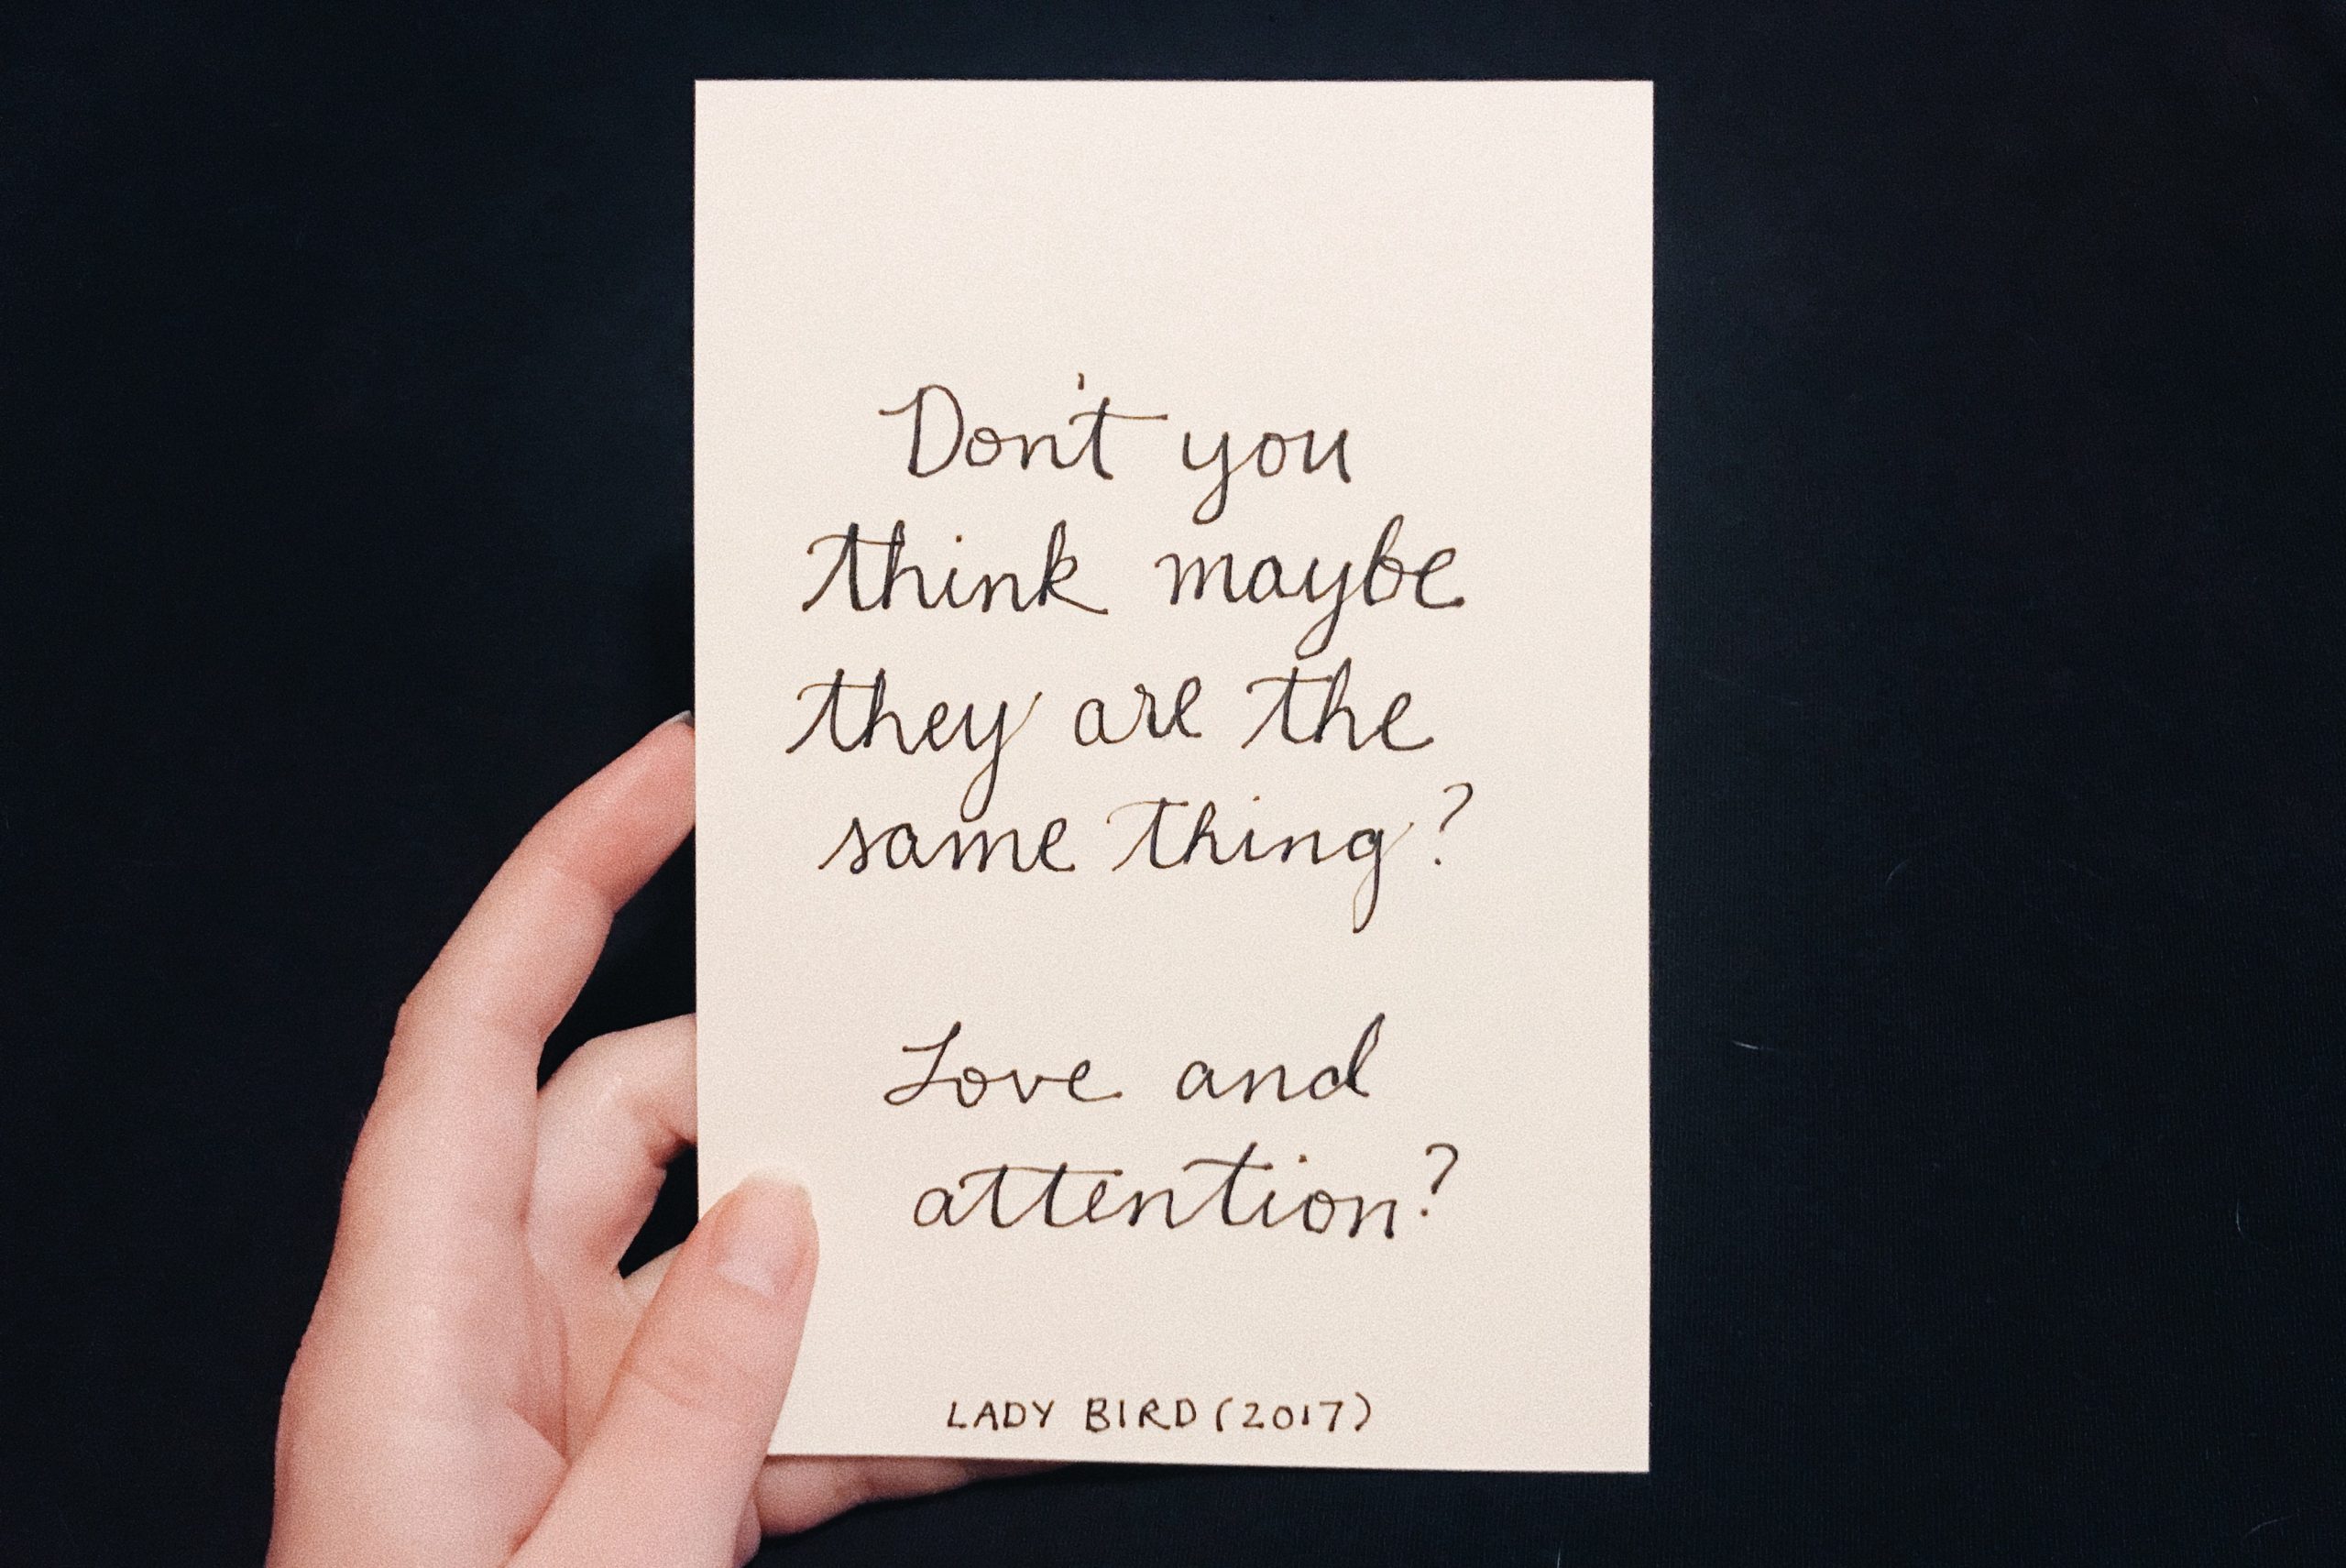 Don't you
think maybe
they are the
same thing?
Love and
attention?
LADY BIRD (2017)